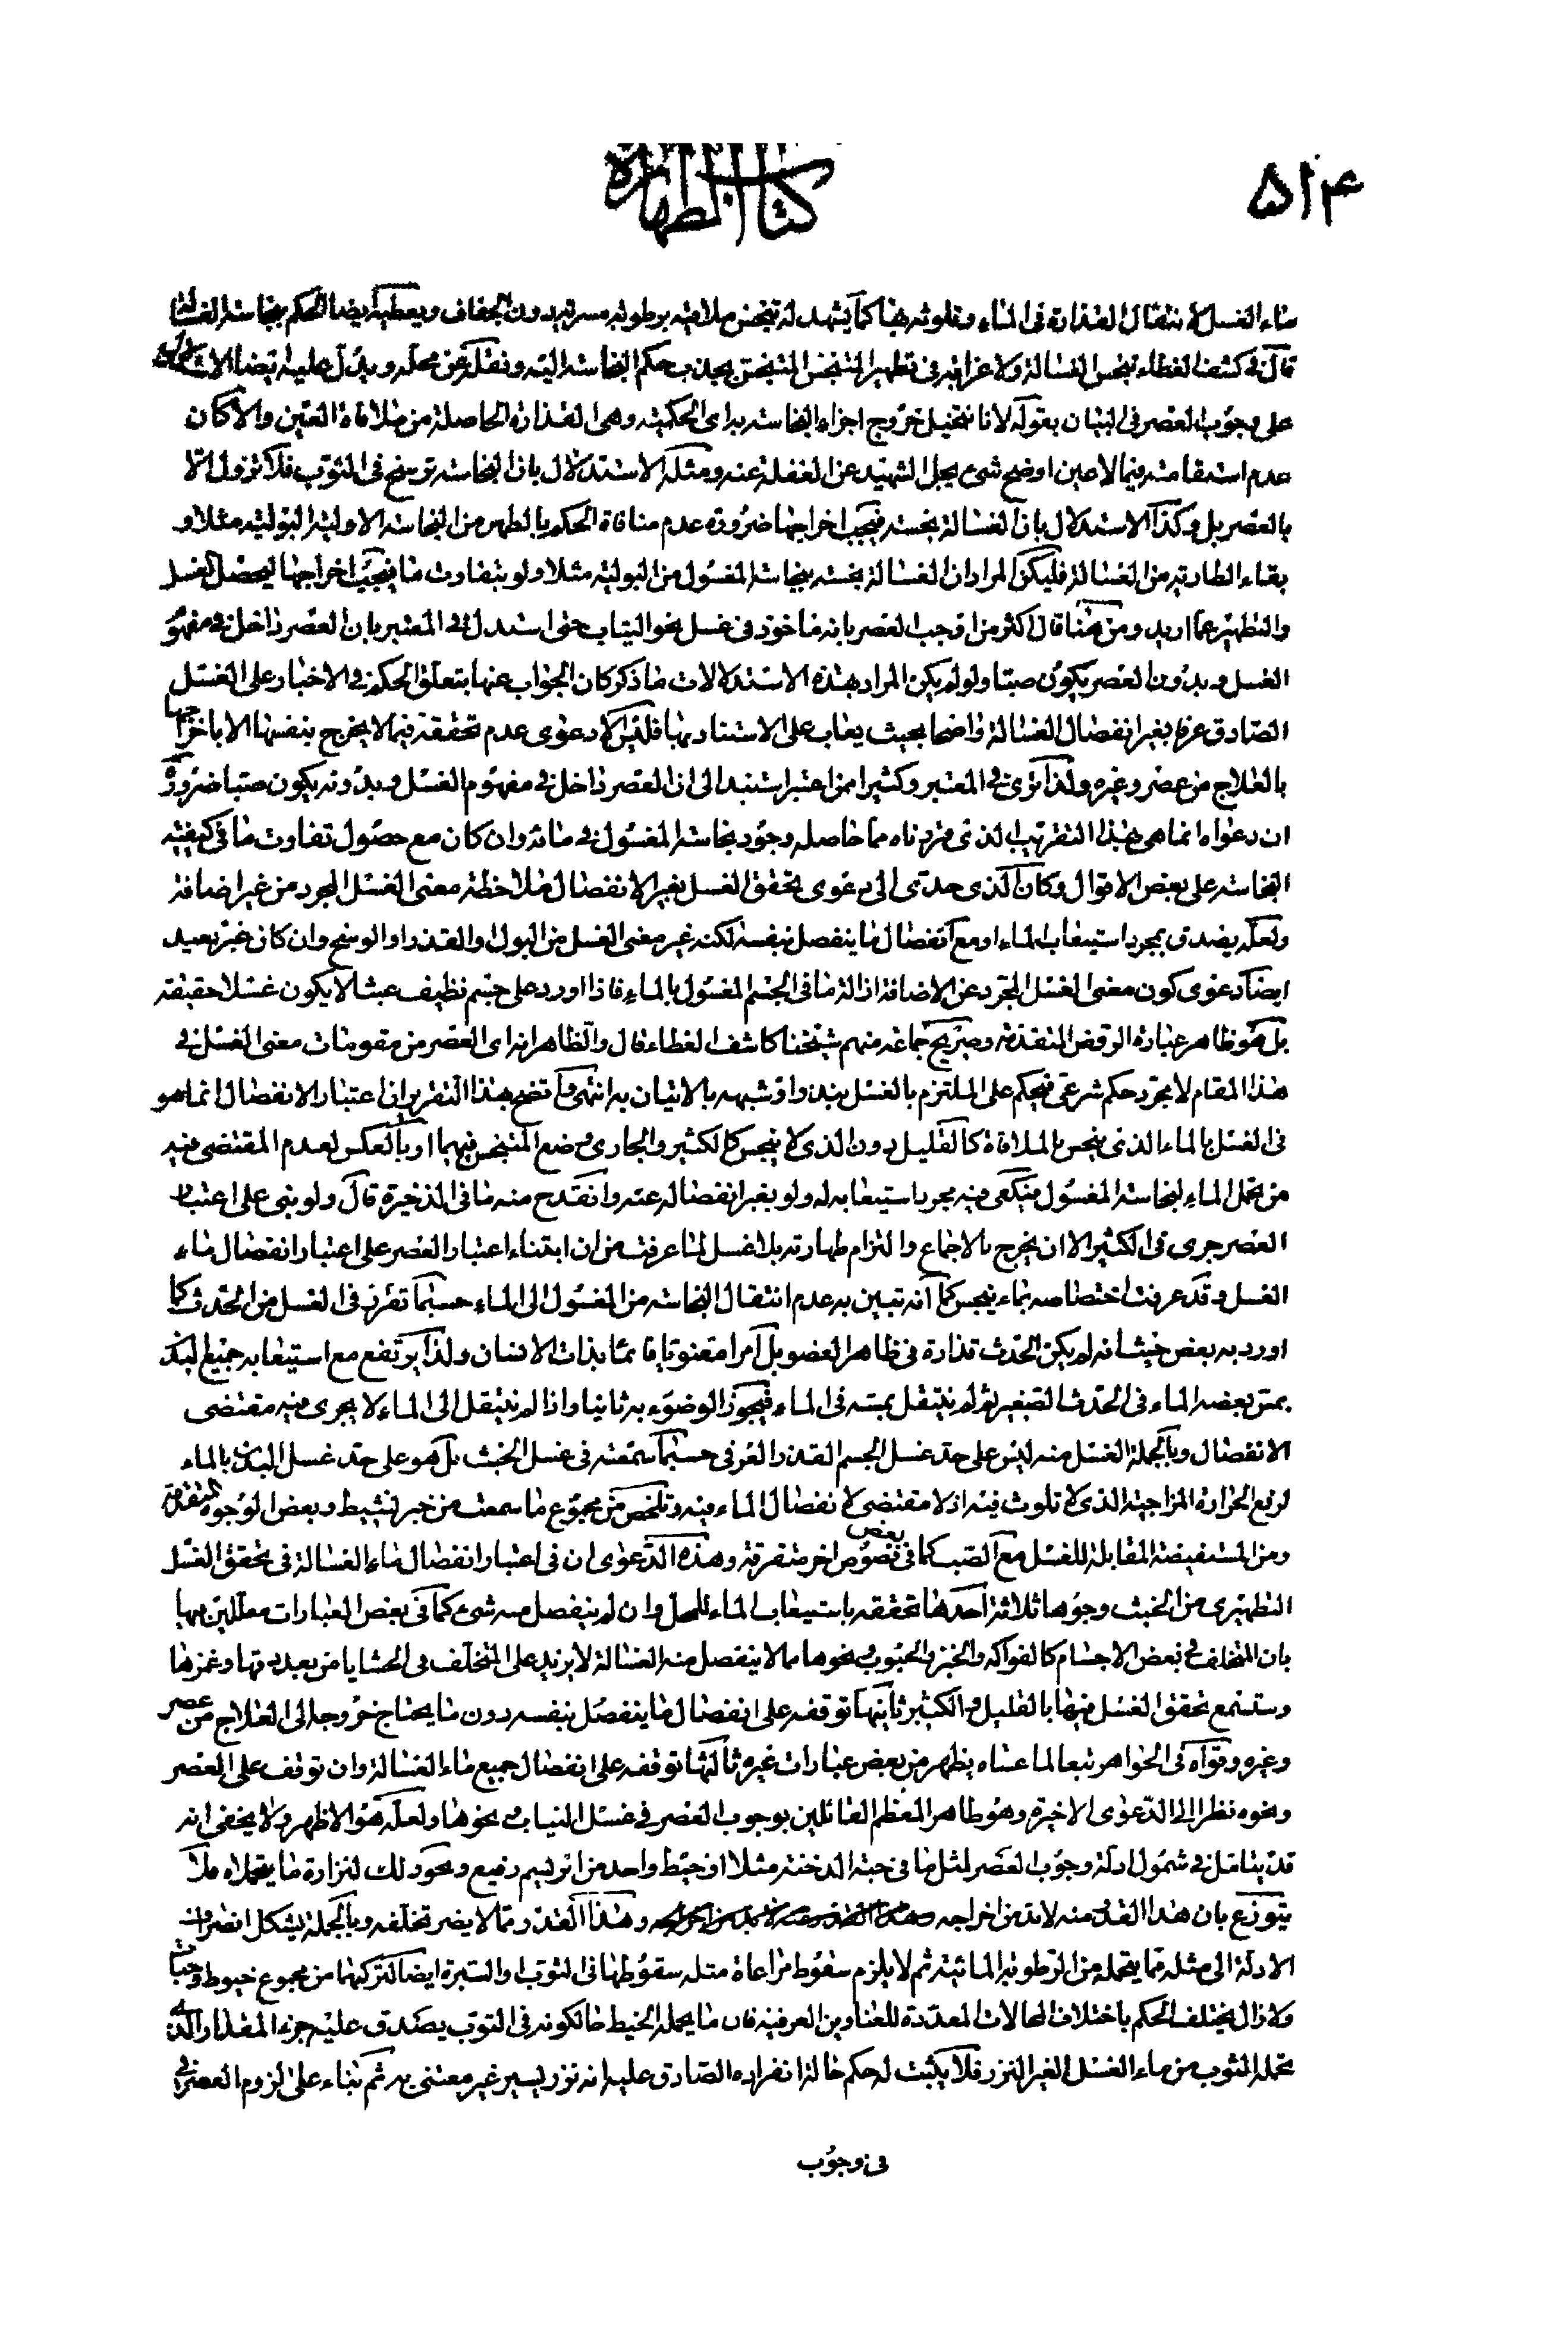 ۵۱۴
كتاب الطهارة
ماء الغسل لانتقال القذارة فى الماء وتلوثه بها كما يشهد له تنجس ملاقيه برطوبة مسرية دون الجفاف ويعطيه ايضا الحكم بنجاسة الغسالة
قال فى كشف الغطاء تنجس الغسالة ولا غرابة فى تطهير المتنجس المتنجس بجذب حكم النجاسة اليه ونقله عن محله ويدل عليه ايضا الاستدلال
على وجوب العصر فى البيان بقوله لانا نتخيل خروج اجزاء النجاسة به اى الحكمية وهى القذارة الحاصلة من ملاقاة العين والا كان
عدم استقامته فيما لا عين اوضح شئ يجل الشهيد عن الغفلة عنه ومثله الاستدلال بان النجاسة ترسخ فى الثوب فلا تزول الا
بالعصر بل وكذا الاستدلال بان الغسالة نجسة فيجب اخراجها ضرورة عدم منافاة الحكم بالطهر من النجاسة الاولية البولية مثلا و
بقاء الطارية من الغسالة فليكن المراد ان الغسالة نجسة بنجاسة المغسول من البولية مثلا ولو بتفاوت ما فيجب اخراجها ليحصل الغسل
والتطهير عما اريد ومن هنا قال اكثر من اوجب العصر بانه ماخوذ فى غسل نحو الثياب حتى استدل فى المعتبر بان العصر داخل فى مفهوم
الغسل وبدون العصر يكون صبا ولو لم يكن المراد بهذه الاستدلالات ما ذكر كان الجواب عنها بتعلق الحكم فى الاخبار على الغسل
الصادق عرفا بغير انفصال الغسالة واضحا بحيث يعاب على الاستناد بها فليس الا دعوى عدم تحققه فيما لا يخرج بنفسها الا باخراجها
بالعلاج من عصر وغيره ولذا ترى فى المعتبر وكثيرا ممن اعتبر استند الى ان العصر داخل فى مفهوم الغسل وبدونه يكون صبا ضرورة
ان دعواه انما هى بهذا التقريب الذى قررناه مما حاصله وجود نجاسة المغسول فى مائه وان كان مع حصول تفاوت ما فى كيفية
النجاسة على بعض الاقوال وكان الذى حدى الى دعوى تحقق الغسل بغير الانفصال ملاحظة معنى الغسل المجرد من غير اضافة
ولعله يصدق بمجرد استيعاب الماء او مع انفصال ما ينفصل بنفسه لكنه غير معنى الغسل من البول والقذر او الوسخ وان كان غير بعيد
ايضا دعوى كون معنى الغسل المجرد عن الاضافة ازالة ما فى الجسم المغسول بالماء فاذا اورد على جسم نظيف عبثا لا يكون غسلا حقيقة
بل هو ظاهر عبارة الروض المتقدمة وصريح جماعة منهم شيخنا كاشف الغطاء قال والظاهر انه اى العصر من مقومات معنى الغسل فى
هذا المقام لا مجرد حكم شرعى فيحكم على الملتزم بالغسل بنذر او شبهه بالاتيان به انتهى واتضح بهذا التقرير ان اعتبار الانفصال انما هو
فى الغسل بالماء الذى ينجس بالملاقاة كالقليل دون الذى لا ينجس كالكثير والجارى وضع المتنجس فيهما او بالعكس لعدم المقتضى فيه
من تحمل الماء لنجاسة المغسول فيكفى فيه مجرد استيعابه له ولو بغير انفصاله عنه وانقدح منه ما فى الذخيرة قال ولو بنى على اعتبار
العصر جرى فى الكثير الا ان يخرج بالاجماع والتزام طهارته بلا غسل لما عرفت من ان ابتناء اعتبار العصر على اعتبار انفصال ماء
الغسل وقد عرفت اختصاصه بماء ينجس كما انه تبين به عدم انتقال النجاسة من المغسول الى الماء حسبما تقرر فى الغسل من الحدث كما
اورد به بعض حيث انه لم يكن الحدث قذارة فى ظاهر العضو بل امرا معنويا قائما بذات الانسان ولذا يرتفع مع استيعابه جميع البدن
بمس بعضه الماء فى الحدث الصغير ثم لم ينتقل بمسه فى الماء فيجوز الوضوء به ثانيا واذا لم ينتقل الى الماء لا يجرى فيه مقتضى
الانفصال وبالجملة الغسل منه ليس على حد غسل الجسم القذر العرفى حسبما سمعته فى غسل الخبث بل هو على حد غسل البدن بالماء
لرفع الحرارة المزاجية الذى لا تلوث فيه اذ لا مقتضى لانفصال الماء فيه وتلخص من مجموع ما سمعت من خبر نشيط وبعض الوجوه المتقدمة
ومن المستفيضة المقابلة للغسل مع الصب كما فى بعض نصوص اخر متفرقة وهذه الدعاوى ان فى اعتبار انفصال ماء الغسالة فى تحقق الغسل
التطهيرى من الخبث وجوها ثلاثة احدها تحققه باستيعاب الماء للمحل وان لم ينفصل منه شئ كما فى بعض العبارات معللين بها
بان المتخلف فى بعض الاجسام كالفواكه والخبز والحبوب ونحوها مما لا ينفصل منه الغسالة لا يزيد على المتخلف فى الحشايا من بعد دقها وغمزها
وستسمع تحقق الغسل فيها بالقليل والكثير ثانيها توقفه على انفصال ما ينفصل بنفسه دون ما يحتاج خروجه الى العلاج من عصر
وغيره وقواه فى الجواهر تبعا لما عساه يظهر من بعض عبارات غيره ثالثها توقفه على انفصال جميع ماء الغسالة وان توقف على العصر
ونحوه نظرا الى الدعوى الاخيرة وهو ظاهر المعظم القائلين بوجوب العصر فى غسل الثياب ونحوها ولعله هو الاظهر ولا يخفى انه
قد يتامل فى شمول ادلة وجوب العصر لمثل ما فى حبة الدخنة مثلا او خيط واحد من ابريسم رفيع ونحو ذلك لنزارة ما يتحملاه فلا
يتوزع بان هذا القدر منه لا بد من اخراجه وهذا القدر مما لا يضر تخلفه وبالجملة يشكل انصراف
الادلة الى مثله مما يتحمله من الرطوبة المائية ثم لا يلزم سقوط مراعاة مثله سقوطها فى الثوب والستبرة ايضا لتركبهما من مجموع خيوط وحبات
ولا زال يختلف الحكم باختلاف الحالات المعددة للعناوين العرفية فان ما يحمله الخيط حالكونه فى الثوب يصدق عليه جزء المقدار الذى
تحمله الثوب من ماء الغسل الغير النزر فلا يثبت له حكم حالة انفراده الصادق عليه انه نزر يسير غير معتنى به ثم بناء على لزوم العصر فى
فى وجوب